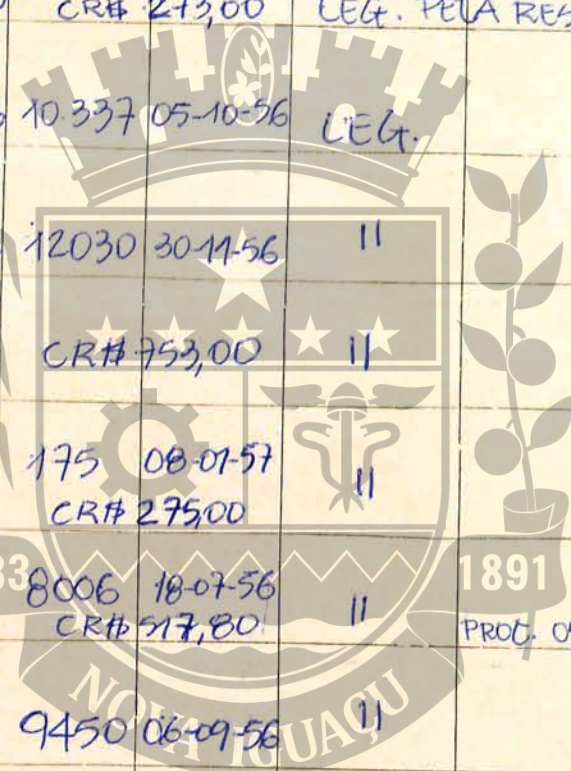 CR$ 273,00 LEG. PELA RES
10.337 05-10-56 LEG.
12030 30-11-56 "
CR$ 753,00 "
175 08-01-57 "
CR$ 275,00
8006 18-07-56 "
CR$ 517,80 PROC.
9450 06-09-56 "
1891
NOVA IGUAÇU